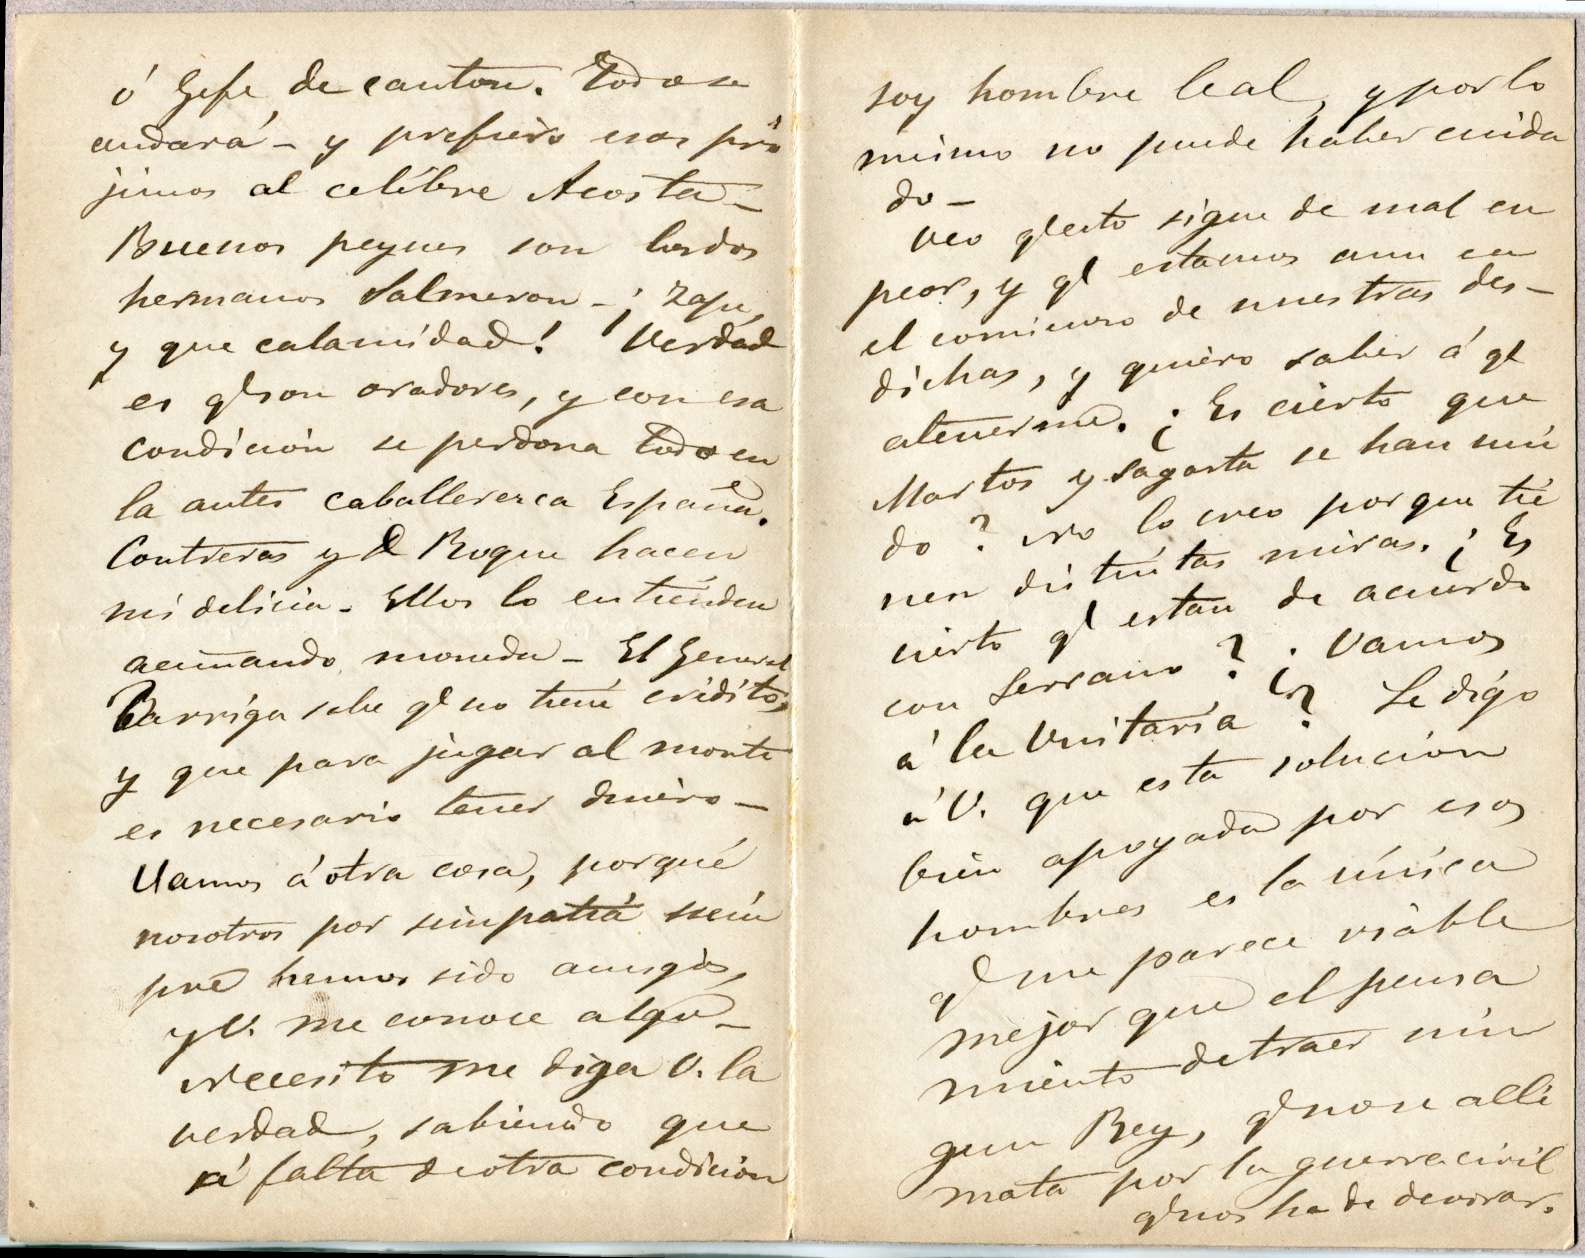 ó Gefe de canton. Todo se
andará - y prefiero esos pró
jimos al celébre Acosta -
Buenos peynes son los dos
hermanos Salmeron - ¡ Zape,
y que calamidad! Verdad
es qe son oradores, y con esa
condición se perdona todo en
la antes caballerezca España.
Contreras y D Roque hacen
mi delicia. Ellos lo entienden
acuñando moneda - El General
Barriga sabe qe no tiene crédito,
y que para jugar al monte
es necesario tener dinero -
Vamos á otra cosa, porqué
nosotros por simpatia siem
pre hemos sido amigos,
y V. me conoce algo -
Necesito me diga V. la
verdad, sabiendo que
á falta de otra condicion
soy hombre leal, y por lo
mismo no puede haber cuida
do -
Veo qe esto sigue de mal en
peor, y qe estamos aun en
el comienzo de nuestras des-
dichas, y quiero saber á qe
atenerme. ¿ Es cierto que
Martos y Sagasta se han uni
do ? No lo creo porque tie
nen distintas miras. ¿ Es
cierto qe estan de acuerdo
con Serrano ? ¿ Vamos
á la Unitaria ? Le digo
á V. que esta solucion
bien apoyada por esos
hombres es la única
qe me parece viable
mejor que el pensa
miento de traer nin
gun Rey, qe no se alli
mata por la guerra civil
qe nos ha de devorar.